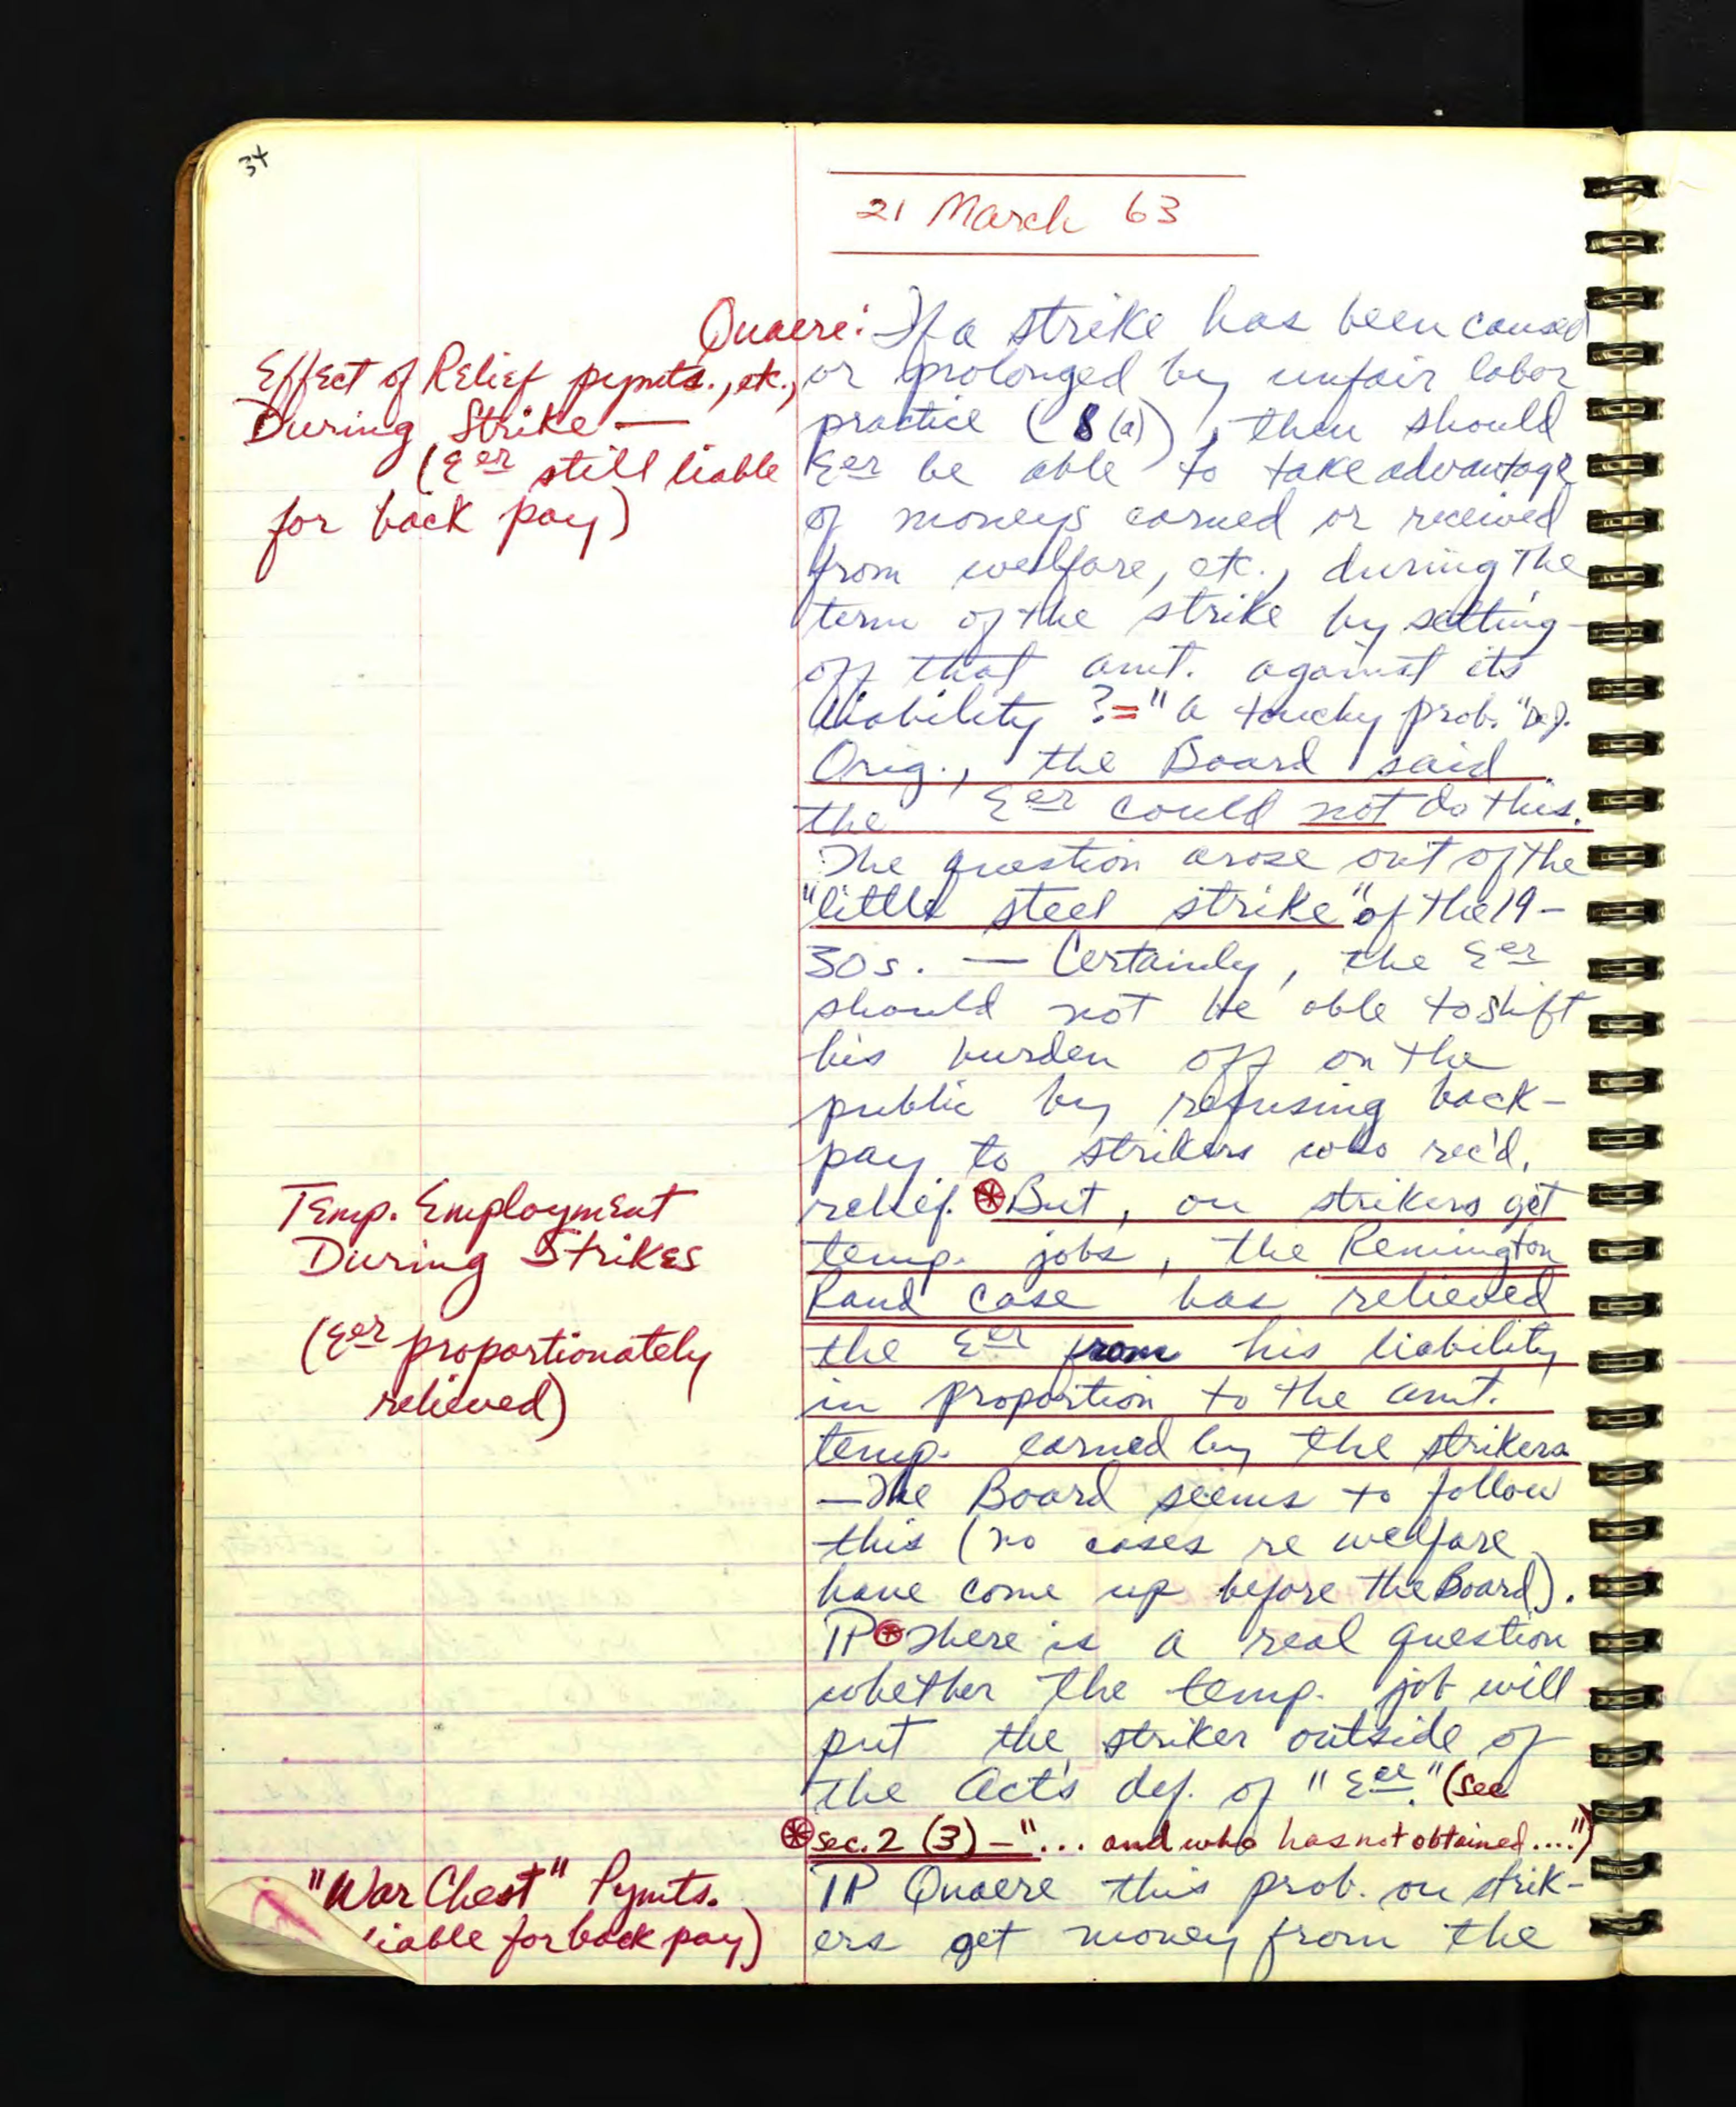 34
21 March 63
Quaere: If a strike has been caused
Effect of Relief pymts., etc.,
During Strike —
(Eer still liable
for back pay)
or prolonged by unfair labor
practice (8(a)), then should
Eer be able to take advantage
of moneys earned or received
from welfare, etc., during the
term of the strike by setting-
off that amt. against its
liability ? = "a touchy prob."
Orig., the Board said
the Eer could not do this.
The question arose out of the
"little steel strike" of the 19-
30s. — Certainly, the Eer
should not be able to shift
his burden off on the
public by refusing back-
pay to strikers who rec'd.
relief. ⊛ But, on strikers get
Temp. Employment
During Strikes
(Eer proportionately
relieved)
temp. jobs, the Remington
Rand case has relieved
the Eer from his liability
in proportion to the amt.
temp. earned by the strikers
— The Board seems to follow
this (no cases re welfare
have come up before the Board).
¶ ⊛ There is a real question
whether the temp. job will
put the striker outside of
the Act's def. of "Eee." (see
⊛ sec. 2 (3) — "... and who has not obtained....")
"War Chest" Pymts.
liable for back pay)
¶ Quaere this prob. on strik-
ers get money from the